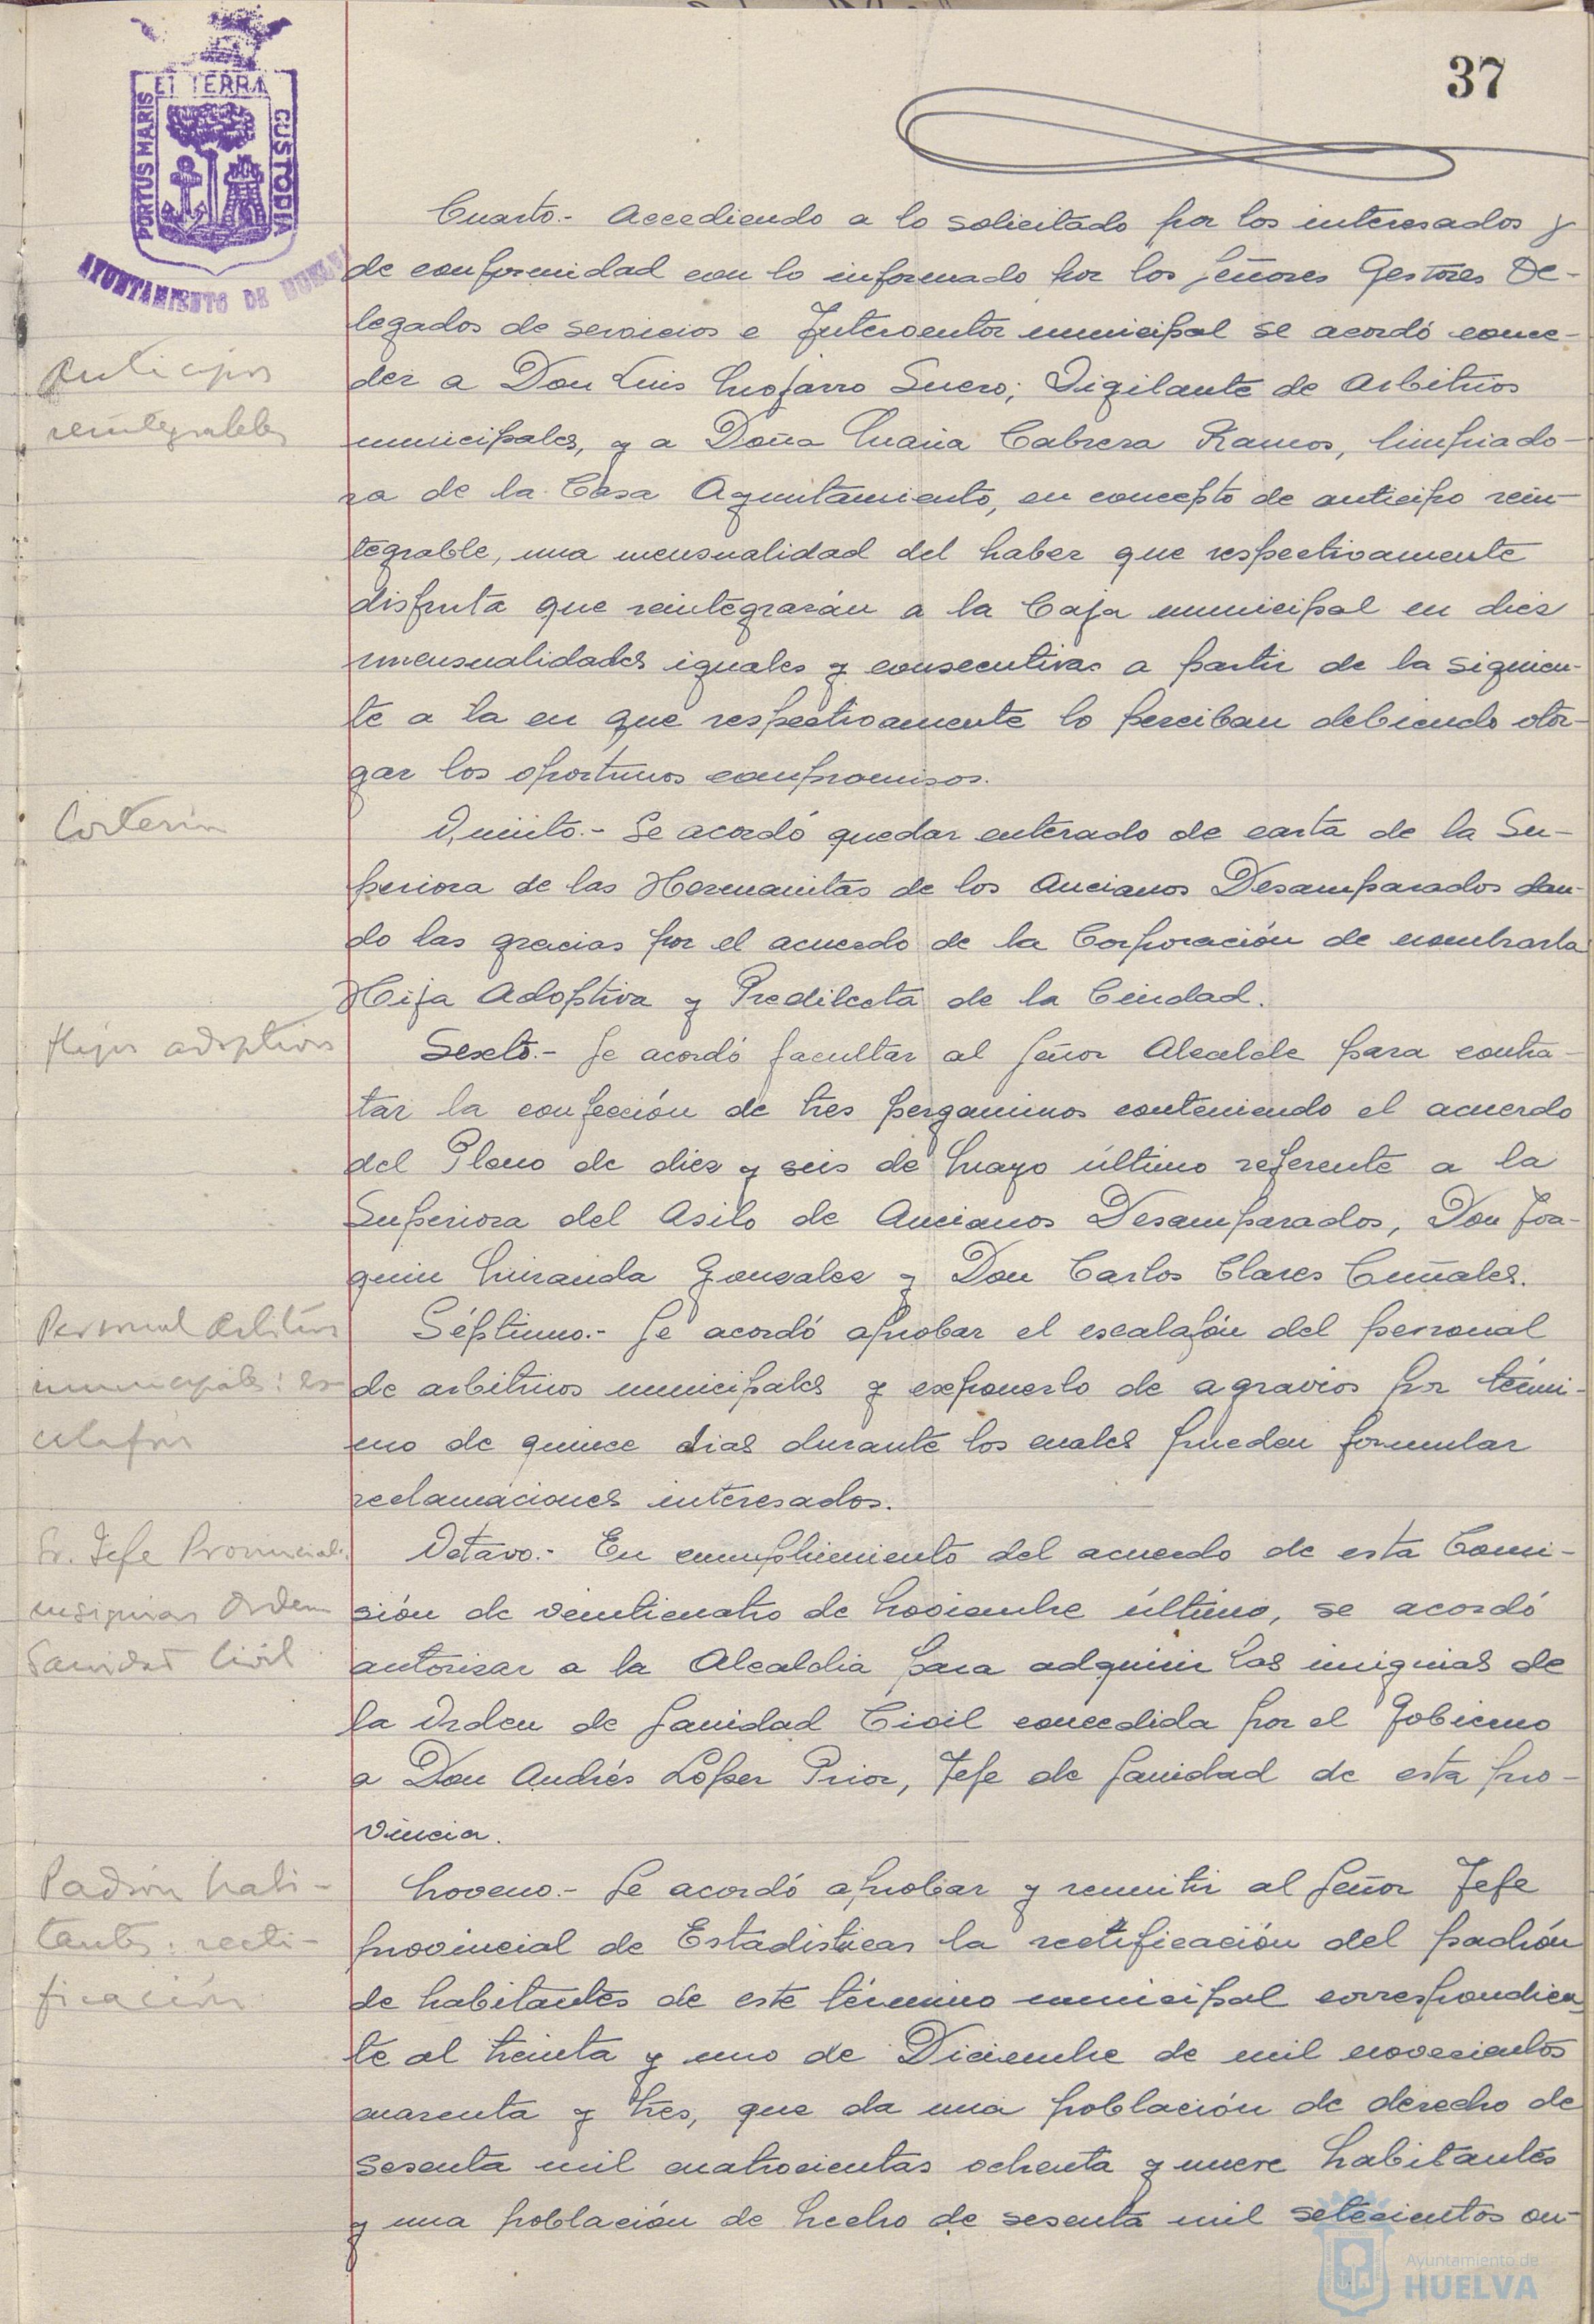 37
ET TERRA
PORTUS MARIS
CUSTODIA
AYUNTAMIENTO DE HUELVA
Cuarto.- Accediendo a lo solicitado por los interesados y
de conformidad con lo informado por los Señores Gestores De-
legados de servicios e Interventor municipal se acordó conce-
Anticipos
der a Don Luis Mojarro Suero, Vigilante de Arbitrios
reintegrables
municipales, y a Doña María Cabrera Ramos, limpiado-
ra de la Casa Ayuntamiento, en concepto de anticipo rein-
tegrable, una mensualidad del haber que respectivamente
disfruta que reintegrarán a la Caja municipal en diez
mensualidades iguales y consecutivas a partir de la siguien-
te a la en que respectivamente lo perciban debiendo otor-
gar los oportunos compromisos.
Cortesía
Quinto.- Se acordó quedar enterado de carta de la Su-
periora de las Hermanitas de los Ancianos Desamparados dan-
do las gracias por el acuerdo de la Corporación de nombrarla
Hija Adoptiva y Predilecta de la Ciudad.
Hijos adoptivos
Sexto.- Se acordó facultar al Señor Alcalde para contra-
tar la confección de tres pergaminos conteniendo el acuerdo
del Pleno de diez y seis de Mayo último referente a la
Superiora del Asilo de Ancianos Desamparados, Don Joa-
quin Miranda Gonzalez y Don Carlos Clares Cuñales.
Personal Arbitrios
Séptimo.- Se acordó aprobar el escalafón del personal
municipales: es-
de arbitrios municipales y exponerlo de agravios por térmi-
calafón
no de quince dias durante los cuales pueden formular
reclamaciones interesados.
Sr. Jefe Provincial.
Octavo.- En cumplimiento del acuerdo de esta Comi-
insignias Orden
sión de veinticuatro de Noviembre último, se acordó
Sanidad Civil
autorizar a la Alcaldia para adquirir las insignias de
la Orden de Sanidad Civil concedida por el Gobierno
a Don Andrés López Prior, Jefe de Sanidad de esta pro-
vincia.
Padrón habi-
Noveno.- Se acordó aprobar y remitir al Señor Jefe
tantes: recti-
provincial de Estadisticas la rectificación del padrón
ficación
de habitantes de este término municipal correspondien-
te al treinta y uno de Diciembre de mil novecientos
cuarenta y tres, que da una población de derecho de
sesenta mil cuatrocientas ochenta y nueve habitantes
y una población de hecho de sesenta mil setecientos on-
Ayuntamiento de
HUELVA